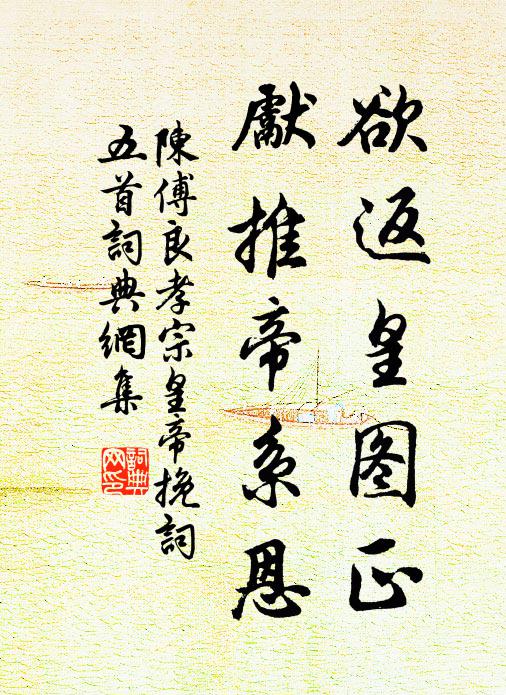 欲返皇图正
獻推帝系恩
陳傅良孝宗皇帝挽詞
五首詞典網集
詞典
网印